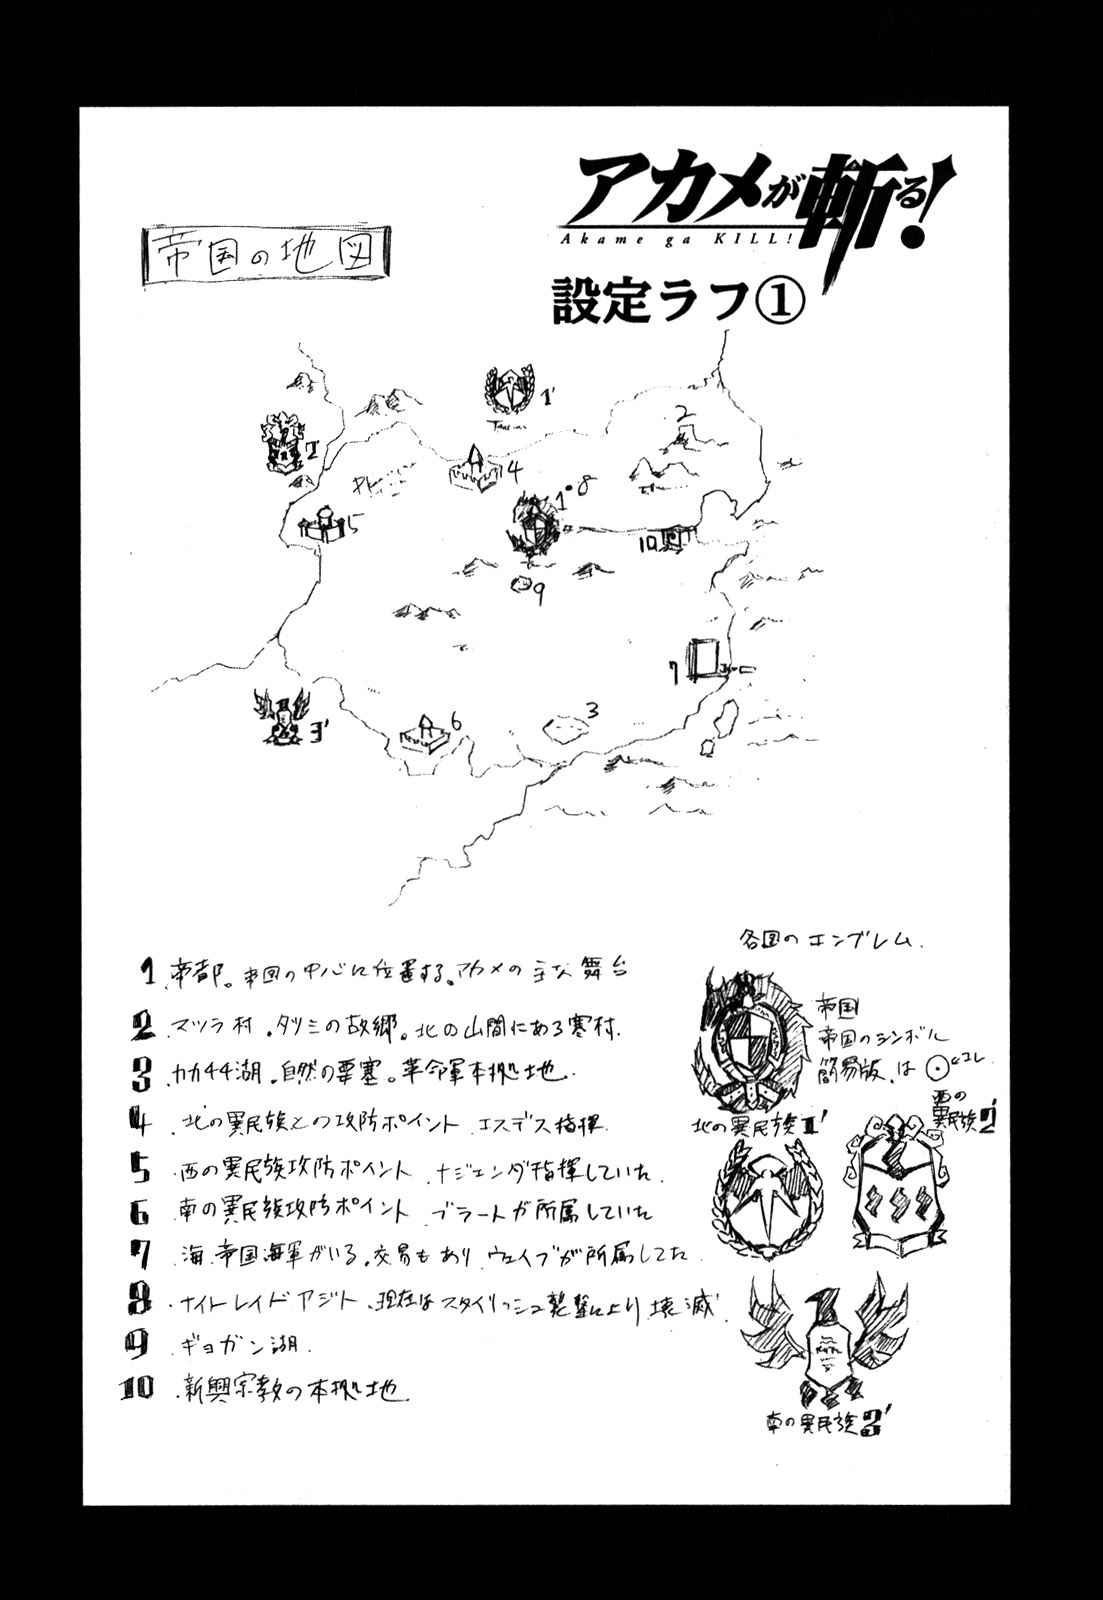 アカメが斬る!
Akame ga KILL!
設定ラフ①
帝国の地図
1'
2'
2
4
5
1・8
10
9
7
3'
6
3
1 帝都。帝国の中心に位置する。アカメの主な舞台
2 マツラ村.タツミの故郷。北の山間にある寒村.
3 カカチチ湖.自然の要塞。革命軍本拠地.
4 .北の異民族との攻防ポイント.エスデス指揮.
5 .西の異民族攻防ポイント.ナジェンダ指揮していた.
6 .南の異民族攻防ポイント.ブラートが所属していた
7 .海.帝国海軍がいる.交易もあり.ウェイブが所属してた.
8 .ナイトレイドアジト.現在はスタイリッシュ襲撃により壊滅.
9 .ギョガン湖.
10 .新興宗教の本拠地.
各国のエンブレム.
帝国
帝国のシンボル
簡易版.は ⊙←コレ.
北の異民族1'
西の
異民族2'
南の異民族3'